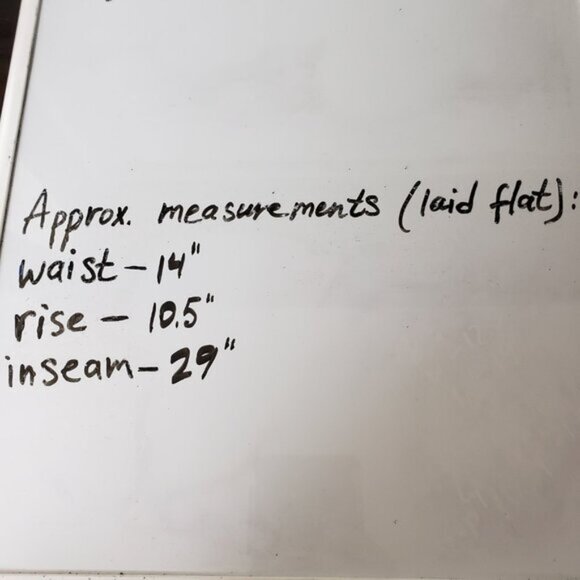 Approx. measurements (laid flat):
waist - 14"
rise - 10.5"
inseam - 29"